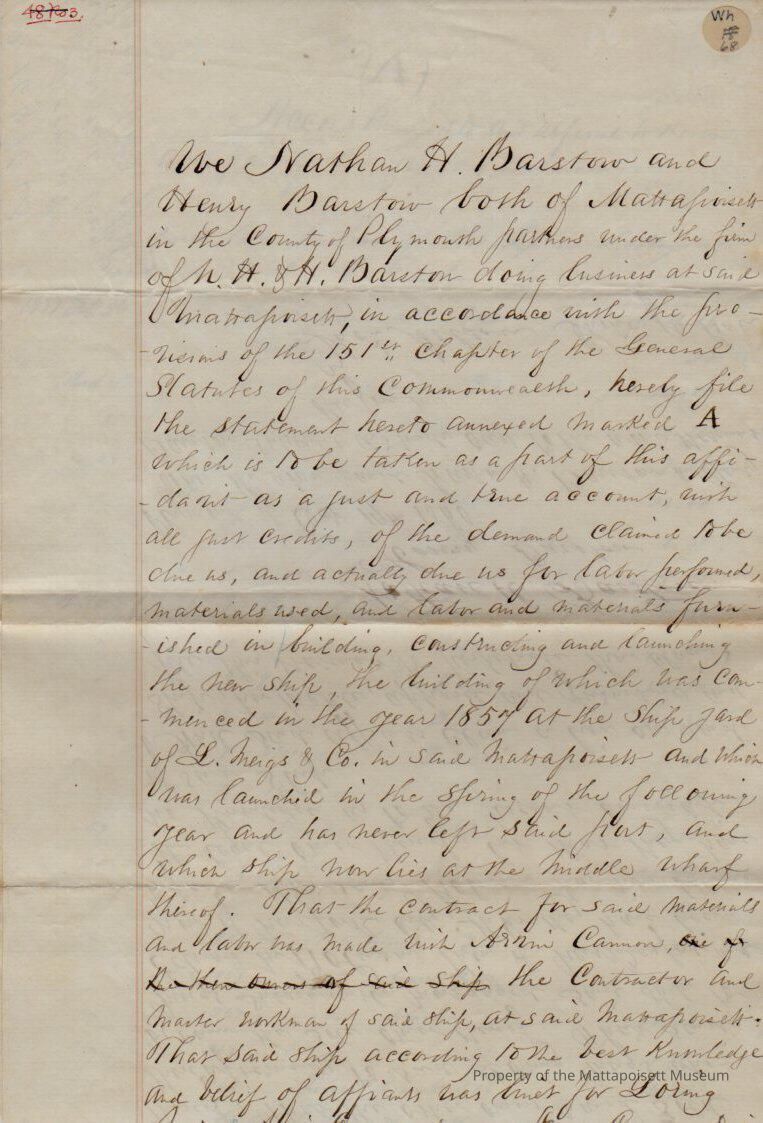 48703.
Wh
#
68
We Nathan H. Barstow and
Henry Barstow both of Mattapoisett
in the County of Plymouth partners under the firm
of N. H. & H. Barstow doing business at said
Mattapoisett, in accordance with the pro-
-visions of the 151st chapter of the General
Statutes of this Commonwealth, hereby file
the statement hereto annexed marked A
which is to be taken as a part of this affi-
-davit as a just and true account, with
all just credits, of the demand claimed to be
due us, and actually due us for labor performed,
materials used, and labor and materials furn-
-ished in building, constructing and launching
the new ship, the building of which was com-
-menced in the year 1857 at the ship yard
of L. Meigs & Co. in said Mattapoisett and which
was launched in the spring of the following
year and has never left said port, and
which ship now lies at the middle wharf
thereof. That the contract for said materials
and labor was made with Arvin Cannon, one of
the then owners of said ship the Contractor and
master workman of said ship, at said Mattapoisett.
That said ship according to the best knowledge
and belief of affiants was built for Loring
Property of the Mattapoisett Museum